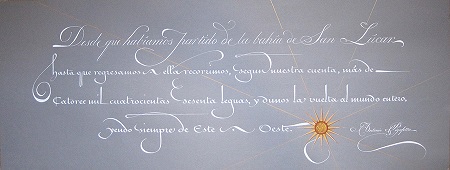 Desde que habíamos partido de la bahía de San Lúcar
hasta que regresamos a ella recorrimos, según nuestra cuenta, más de
Catorce mil cuatrocientas sesenta leguas, y dimos la vuelta al mundo entero,
yendo siempre de Este a Oeste.
Antonio Pigafetta